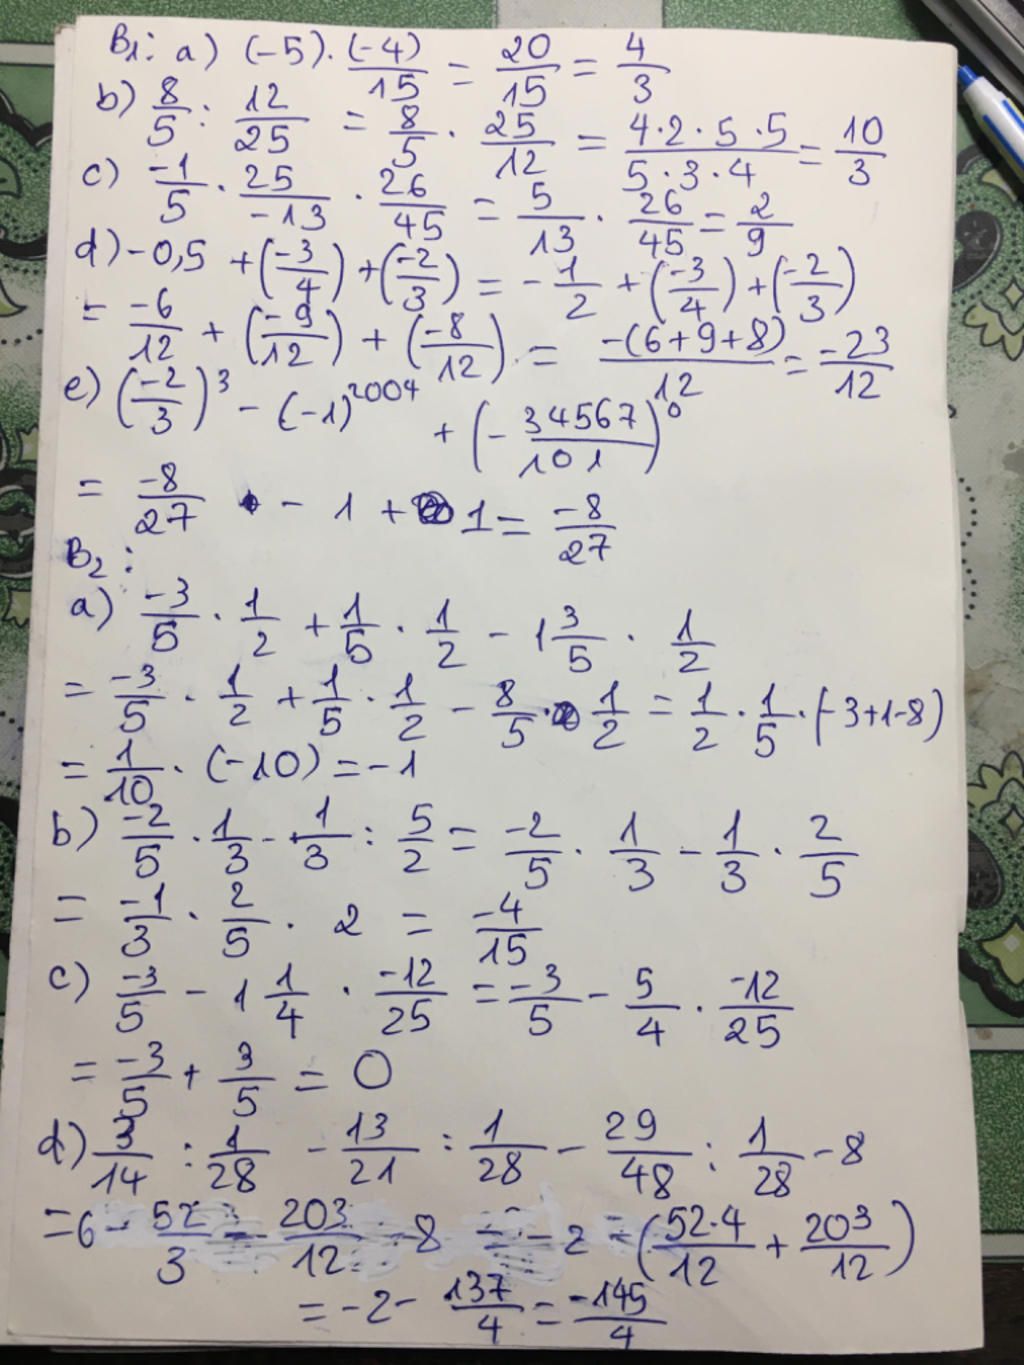 B₁: a) (-5) . (-4)/15 = 20/15 = 4/3
b) 8/5 : 12/25 = 8/5 . 25/12 = (4.2.5.5)/(5.3.4) = 10/3
c) -1/5 . 25/-13 . 26/45 = 5/13 . 26/45 = 2/9
d) -0,5 + (-3/4) + (-2/3) = -1/2 + (-3/4) + (-2/3)
= -6/12 + (-9/12) + (-8/12) = -(6+9+8)/12 = -23/12
e) (-2/3)³ - (-1)²⁰⁰⁴ + (-34567/101)⁰
= -8/27 - 1 + 1 = -8/27
B₂:
a) -3/5 . 1/2 + 1/5 . 1/2 - 1 3/5 . 1/2
= -3/5 . 1/2 + 1/5 . 1/2 - 8/5 . 1/2 = 1/2 . 1/5 . (-3+1-8)
= 1/10 . (-10) = -1
b) -2/5 . 1/3 - 1/3 : 5/2 = -2/5 . 1/3 - 1/3 . 2/5
= -1/3 . 2/5 . 2 = -4/15
c) -3/5 - 1 1/4 . -12/25 = -3/5 - 5/4 . -12/25
= -3/5 + 3/5 = 0
d) 3/14 : 1/28 - 13/21 : 1/28 - 29/48 : 1/28 - 8
= 6 - 52/3 - 203/12 - 8 = -2 - (52.4/12 + 203/12)
= -2 - 137/4 = -145/4